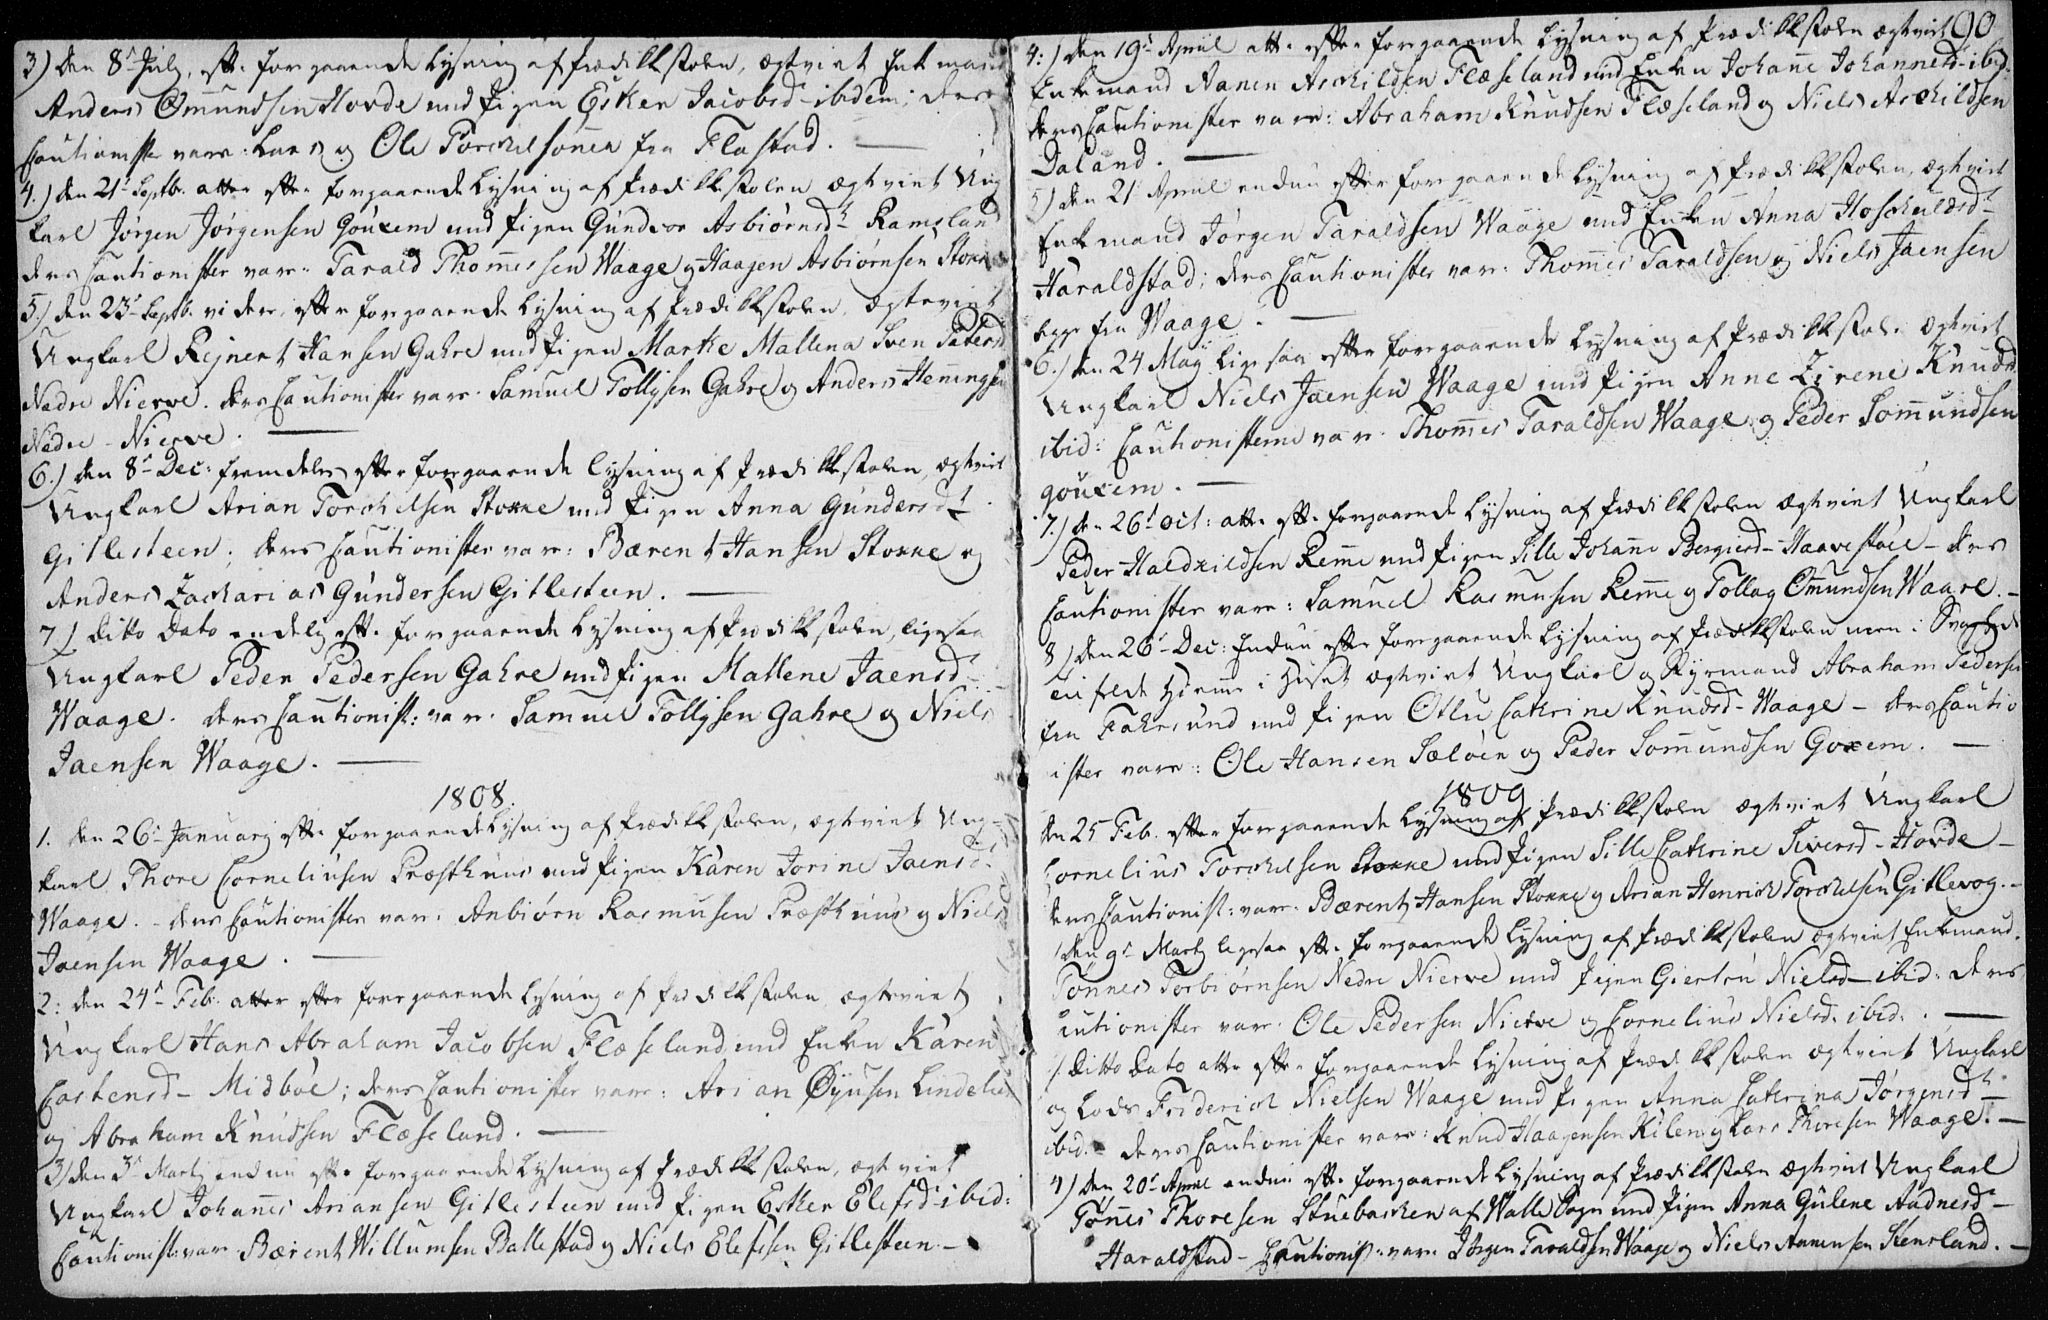 3) den 8de Julj, eft. forgaaende Lysning af Prædikkstolen, ægtviet Enkemand
Anders Omundsen Hovde med Pigen Esther Jacobsd- ibidem; deres
Cautionister vare: Lars og Ole Torchelsønner fra Flastad.
4.) den 21de Septbr. atter efter forgaaende Lysning af Prædikkstolen ægtviet Ung
karl Jørgen Jørgensen Gouxem med Pigen Gundvor Asbiørnsd- Ramsland
deres Cautionister var: Tarald Thommesen Waage og Haagen Asbiørnsen Stokke
5.) den 23de Septb. videre, efter forgaaende Lysning af Prædikkstolen, ægteviet
Ungkarl Rejnert Hansen Gahre med Pigen Marthe Mallena Svenn Peters
Nedre Nierve. deres Cautionister vare Samuel Tollysen Gahre og Anders Henningsen
Nedre Nierve.
6.) den 8de Dec: fremdeles efter forgaaende Lysning af Prædikkstolen, ægtviet
Ungkarl Arian Torchelsen Stokke med Pigen Anna Gundersdt
Gitlesteen; deres Cautionister var: Bærent Hansen Stokke og
Anders Zacharias Gundersen Gitlesteen.
7) Ditto Dato endelig eft. forgaaende Lysning af Prædikkstolen, ligesaa
Ungkarl Peder Pedersen Gahre med Pigen Mallene Jaensd-
Waage. deres Cautionist: var. Samuel Tollysen Gahre og Niels
Jaensen Waage.
1808.
1. den 26de Januarj eft. forgaaende Lysning af Prædikkstolen, ægtviet Ung-
karl Thore Corneliusen Præsthuus med Pigen Karen Jorine Jaensd.
Waage. - deres Cautionister var: Anbiørn Rasmusen Præsthuus og Niels
Jaensen Waage.
2: den 24de Feb. atter efter forgaaende Lysning af Prædikkstolen ægteviet
Ungkarl Hans Abraham Jacobsen Flæseland med Enken Karen
Castensd- Midbøe; deres Cautionister vare: Arian Øyusen Lindeland
og Abraham Knudsen Flæseland.
3) den 3de Martj endnu eft. forgaaende Lysning af Prædikkstolen, ægtviet
Ungkarl Johannes Ariansen Gitlesteen med Pigen Esther Elefsd- ibid:
Cautionist: var Bærent Willumsen Ballestad og Niels Elefsen Gitlesteen.-
90
4:) den 19de April att. efter forgaaende Lysning af Prædikkstolen ægtviet
Enkemand Aanen Aschildsen Flæseland med Enken Johanne Johannesd- ibid:
deres Cautionister vare: Abraham Knudsen Flæseland og Niels Aschildsen
Daland.
5) den 21 April endnu efter forgaaende Lysning af Prædikkstolen, ægtviet
Enkemand Jørgen Taraldsen Waage med Enken Anna Hoschuldsd-
Haraldstad; deres Cautionister var: Thommes Taraldsen og Niels Jaensen
begge fra Waage.
6.) den 24 Maj ligesaa efter forgaaende Lysning af Prædikkstolen ægtviet
Ungkarl Niels Jaensen Waage med Pigen Anne Zirene Knudsd
ibid: Cautionisterne var. Thommes Taraldsen Waage og Peder Sommundsen
Gouxem.
7.) den 26de Oct: att. eft. forgaaende Lysning af Prædikkstolen ægtviet Ungkarl
Peder Haldkildsen Remme med Pigen Sille Johanne Bergiesd- Haavestøel - deres
Cautionister vare: Samuel Rasmusen Remme og Tollag Omundsen Waare.-
8) den 26de Dec: Endnu efter forgaaende Lysning af Prædikkstolen men i Svaghed
hiemme i Huset ægtviet Ungkarl og Styrmand Abraham Pedersen
fra Fahrsund med Pigen Otlu Cathrine Knudsd- Waage - deres Cautio
ister vare: Ole Hansen Sæløen og Peder Sommundsen Goxem.
1809
den 25 Feb. efter forgaaende Lysning af Prædikkstolen ægtviet Ungkarl
Cornelius Torchelsen Stokke med Pigen Sille Cathrine Siversd- Hovde -
deres Cautionist: var. Bærent Hansen Stokke og Arian Henrich Torchelsen Gitlevog.-
den 9de Martj ligesaa eft. forgaaende Lysning af Prædikkstolen ægtviet Enkemand.
Tønnes Torbiørnsen Nedre Nierve med Pigen Giertru Nielsd- ibid: deres
Cautionister var. Ole Pedersen Nierve og Cornelius Nielsd. ibid:.
) Ditto Dato atter efter forgaaende Lysning af Prædikkstolen ægtviet Ungkarl
og Lods Friderich Nielsen Waage med Pigen Anna Cathrina Jørgensdt-
ibid. deres Cautionister vare: Knud Haagensen Kilen og Lars Thoresen Waage.-
4) den 20de April endnu eft. forgaaende Lysning af Prædikkstolen ægtviet Ungkarl
Tønnes Thoresen Stuebacken af Walle Sogn med Pigen Anna Gulene Aadnesd-
Haraldstad - Cautionist: var. Jørgen Taraldsen Waage og Niels Aanensen Stensland.-